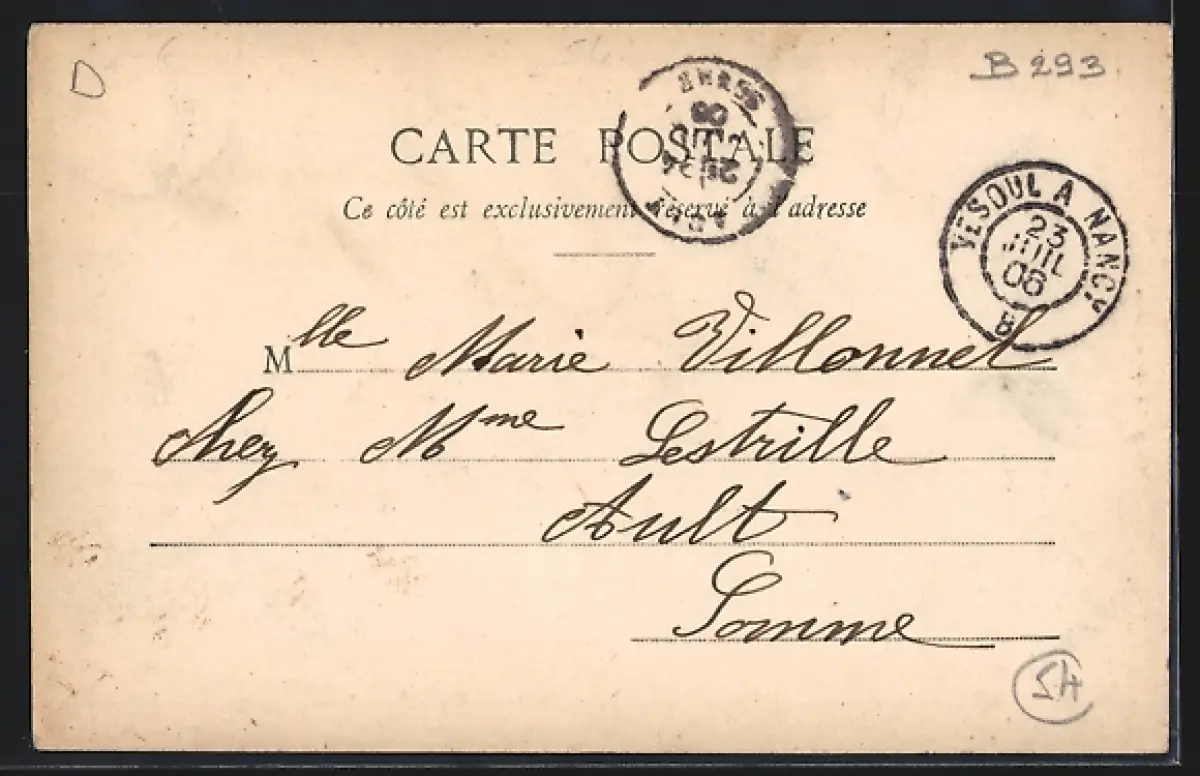 D
B 293
CARTE POSTALE
Ce côté est exclusivement réservé à l'adresse
VESOUL A NANCY
23
JUIL
06
B
Mlle Marie Villonnet
Chez Mme Lestrille
Ault
Somme
54